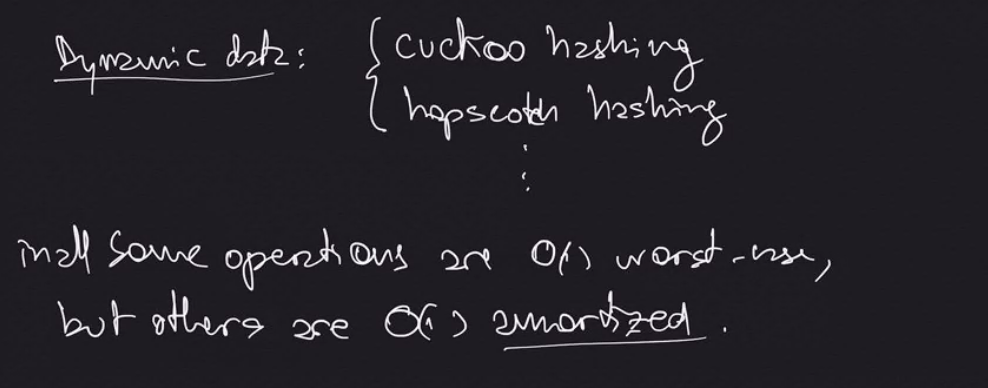 Dynamic data:
{ cuckoo hashing
{ hopscotch hashing
⋮
in all some operations are O(1) worst-case,
but others are O(1) amortized.